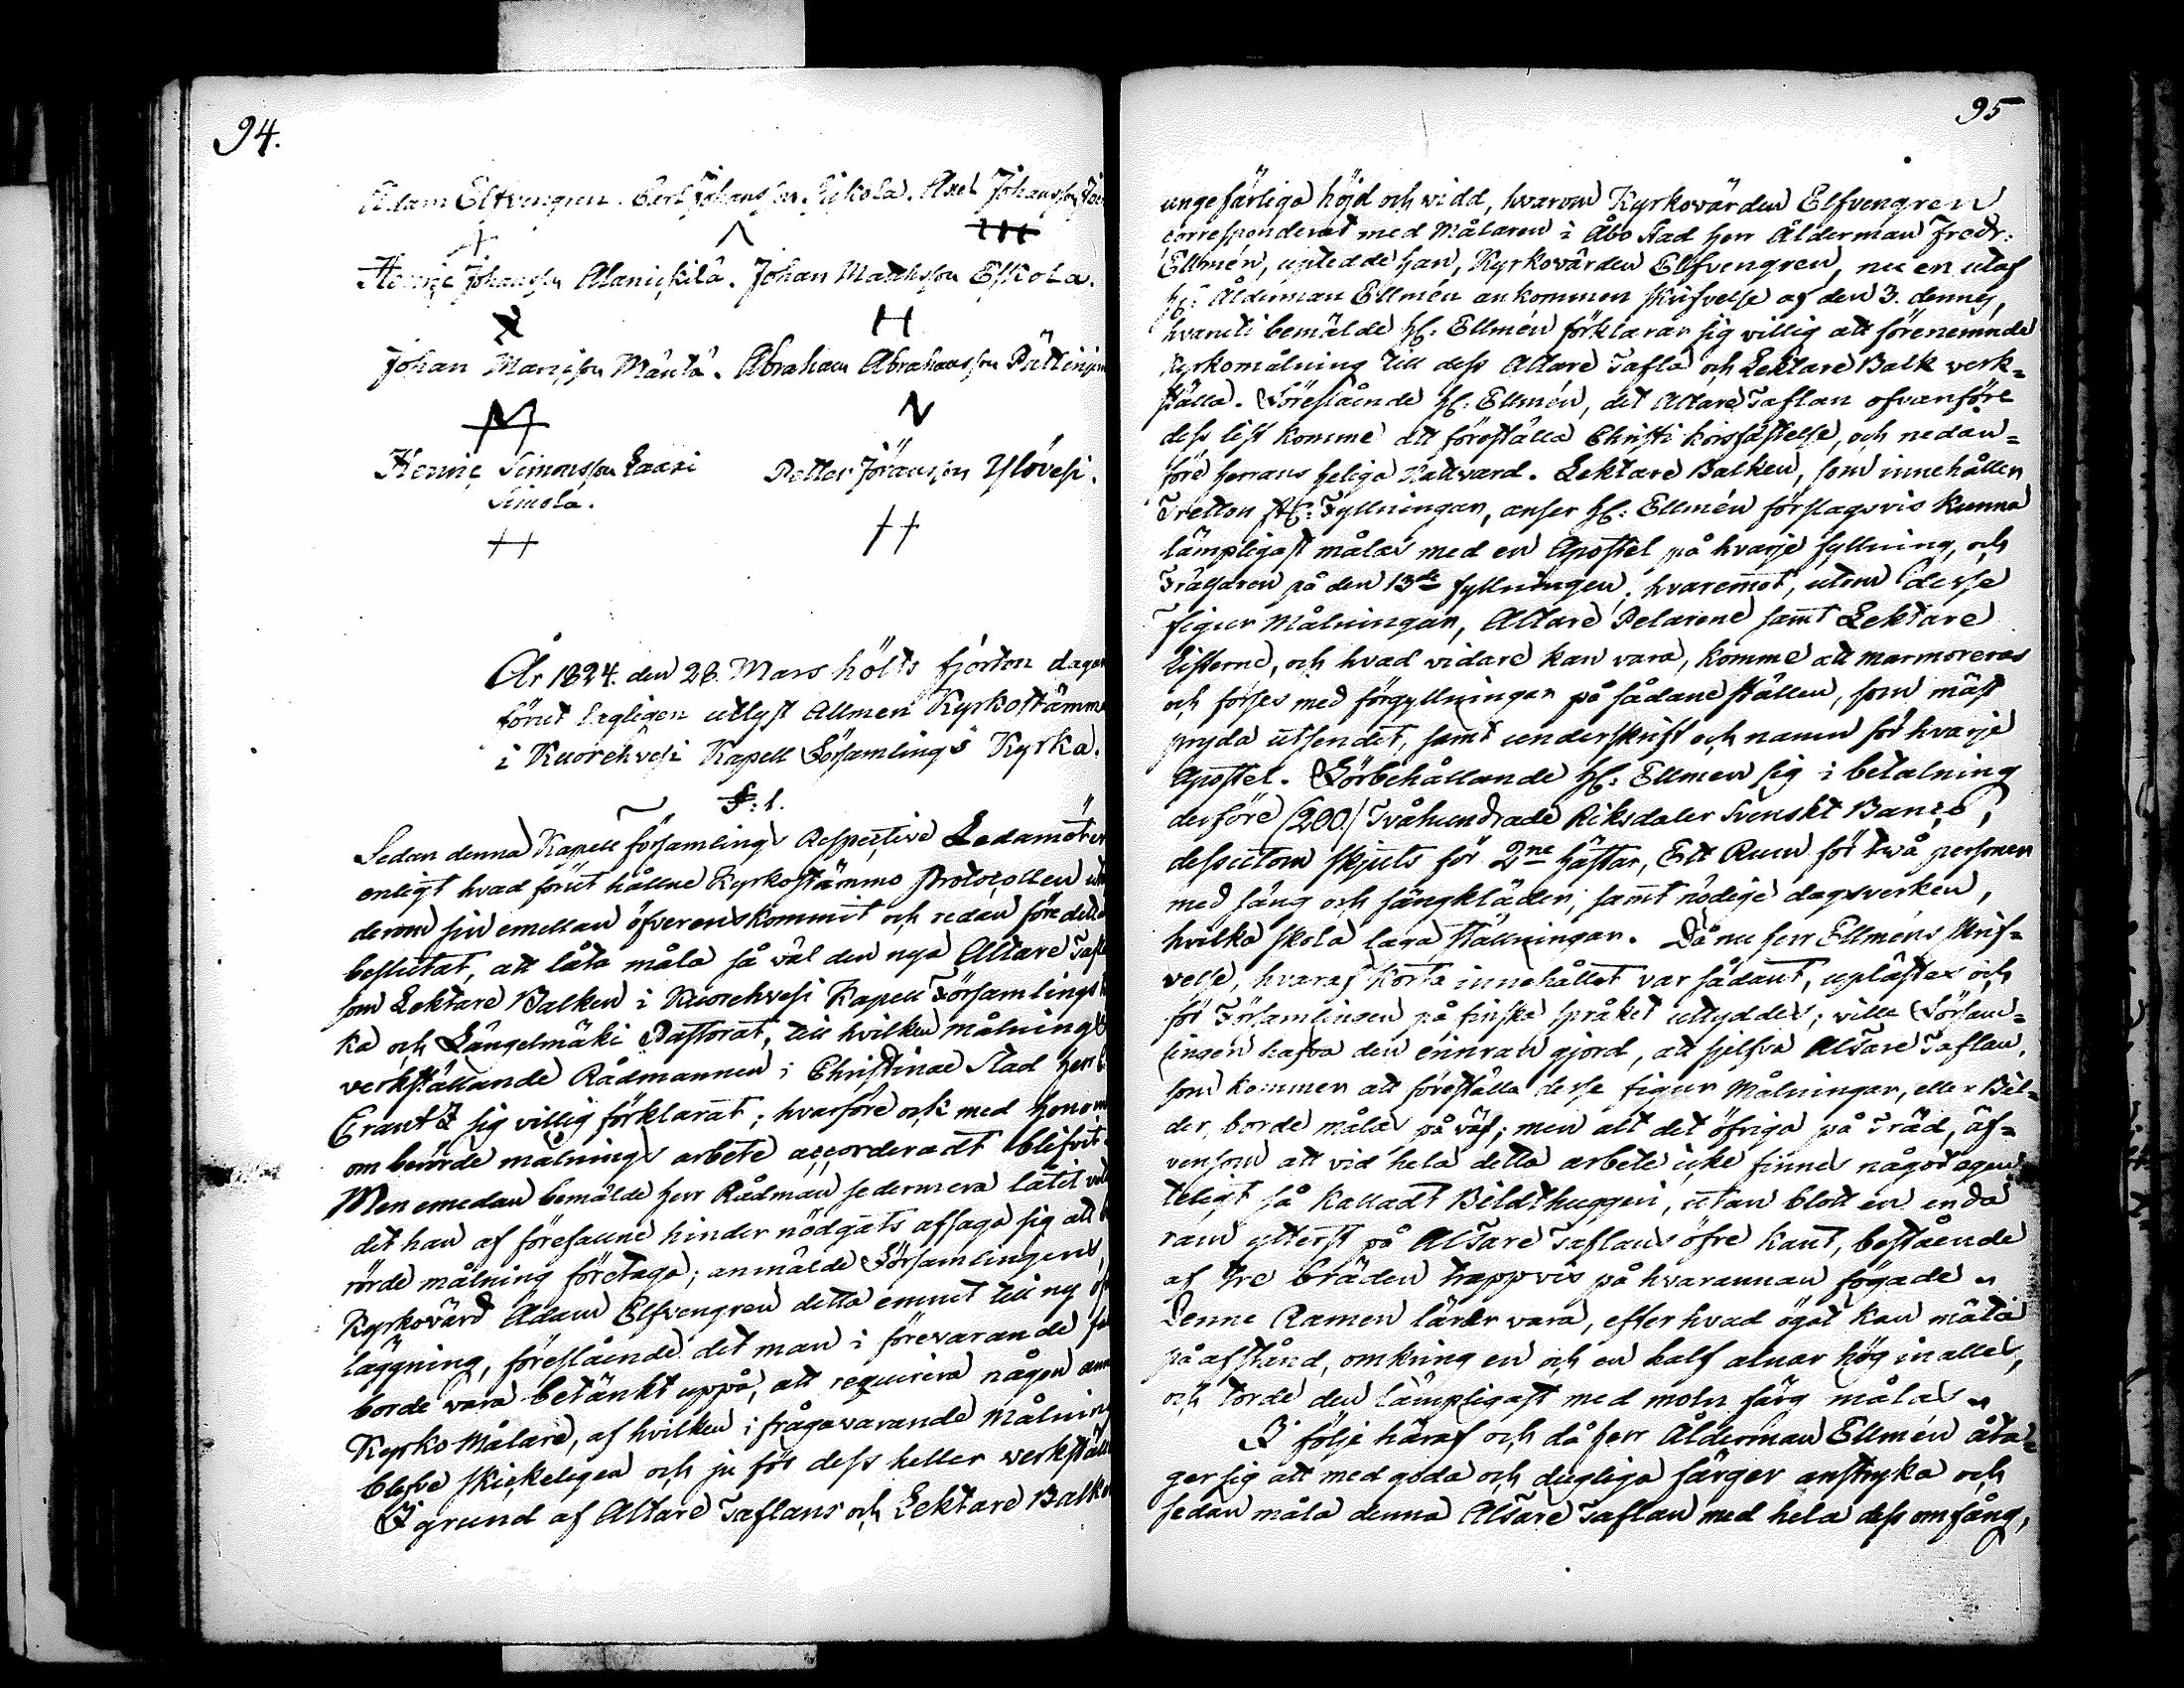 94.
Adam Elfvengren. Carl Johansson Eskola. Axel Johansson
Henric Johansson Alanickilä. Johan Matthsson Eskola.
Johan Maricson Mäntä. Abraham Abrahamsson
Henric Simonsson Laari Petter Jöransson Ylövesi.
Simola.
År 1824. den 28. Mars hölts fjorton dagar
förut lagligen utlyst Allmen Kyrkostämma
i Kuorehvesi Kapell Församlings Kyrka.
§: 1.
Sedan denna Kapell församlings Respective Ledamöter
enligt hvad förut hållne Kyrkostämmo Protocollen
derom sin emellan öfverenskommit och redan före detta
beslutat, att låta måla så väl den nya Altare Tafla
som Lektare Balken i Kuorehvesi Kapell Församlings
ka och Längelmäki Pastorat, till hvilken målnings
verkställande Rådmannen i Christinae Stad Herr
Crantz sig villig förklarat; hvarföre ock med honom
om berörde målnings arbete accorderadt blifvit.
Men emedan bemälde Herr Rådman sedermera låtit
det han af förefallne hinder nödgats afsaga sig att
rörde målning företaga; anmälde Församlingens
Kyrkovärd Adam Elfvengren detta ämnet till ny
läggning, föreslående det man i förevarande
borde vara betänkt uppå, att requirera någon annan
Kyrko Målare, af hvilken i fråga varande Målning
blefve skickeligen och ju för dess heller verkställd
I grund af Altare Taflans och Lektare Balkens
95
ungefärliga höjd och vidd, hvarom Kyrkovärden Elfvengren
corresponderat med Målaren i Åbo Stad Herr Ålderman Fredr.
Ellmén, uptedde han, Kyrkovärden Elfvengren, nu en utaf
H: Ålderman Ellmén ankommen skrifvelse af den 3. dennes,
hvaruti bemälde H: Ellmén förklarar sig villig att förenemnde
Kyrkomålning till dess Altare Tafla och Lektare Balk verk=
ställa. Föreslående H: Ellmén, det Altare Taflan ofvanföre
dess list komme att föreställa Christi korsfästelse, och nedan=
före Herrans Heliga Nattvard. Lektare Balken, som innehåller
Tretton St: Fyllningar, anser H: Ellmén förslagsvis kunna
lämpligast målas med en Apostel på hvarje fyllning, och
Frälsaren på den 13de fyllningen; hvaremot, utom desse
figur Målningar, Altare Pelarene samt Lektare
Listerne, och hvad vidare kan vara, komme att marmoreras
och förses med förgyllningar på sådane ställen, som mäst
pryda utseendet, samt underskrift och namn för hvarje
Apostel. Förbehållande H: Ellmén sig i betalning
derföre (200.) Tvåhundrade Riksdaler Svenskt Banco,
dessutom skjuts för 2ne hästar, Ett Rum för två personer
med säng och sängkläder, samt nödige dagsverken,
hvilka skola laga Ställningar. Då nu Herr Ellméns skrif=
velse, hvaraf korta innehållet var sådant, uplästes och
för Församlingen på finska språket uttyddes; ville Försam=
lingen hafva den erinran gjord, att sjelfva Altare Taflan,
som kommer att föreställa desse figur Målningar, eller Bil=
der, borde målas på väf; men att det öfriga på Träd, äf=
vensom att vid hela detta arbete icke finnes något egen
teligt så kalladt Bildthuggeri, utan blott en enda
ram ytterst på Altare Taflans öfre kant, bestående
af tre bräden trappvis på hvarannan fogade.
Denne Ramen lärer vara, efter hvad ögat kan mäta
på afstånd, omkring en och en half alnar hög in alles,
och torde den lämpligast med moln färg målas.
I följe häraf och då Herr Ålderman Ellmén åta=
ger sig att med goda och dugliga färger anstryka och
sedan måla denna Altare Taflan med hela dess omfång,